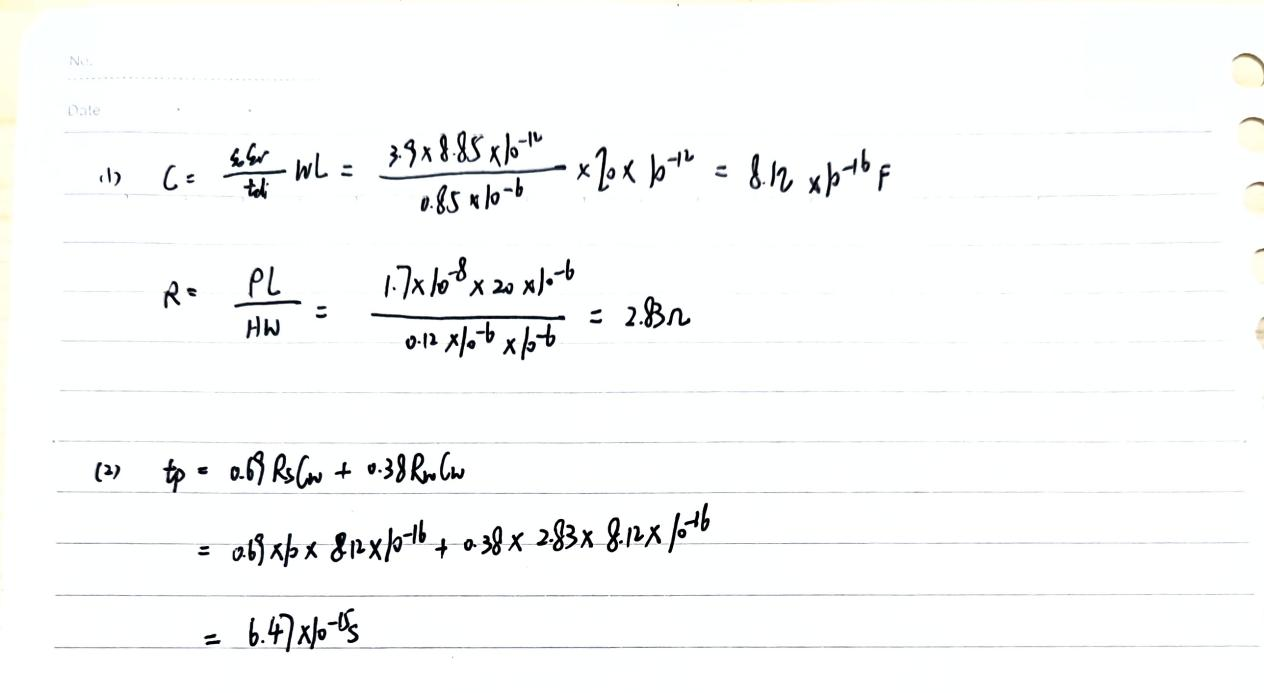 No.
Date
(1) C = ε₀εr/tdi WL = 3.9×8.85×10⁻¹²/0.85×10⁻⁶ ×20×10⁻¹² = 8.12×10⁻¹⁶F
R = ρL/HW = 1.7×10⁻⁸×20×10⁻⁶/0.12×10⁻⁶×10⁻⁶ = 2.83Ω
(2) tp = 0.69RsCw + 0.38RwCw
= 0.69×10×8.12×10⁻¹⁶ + 0.38×2.83×8.12×10⁻¹⁶
= 6.47×10⁻¹⁵s